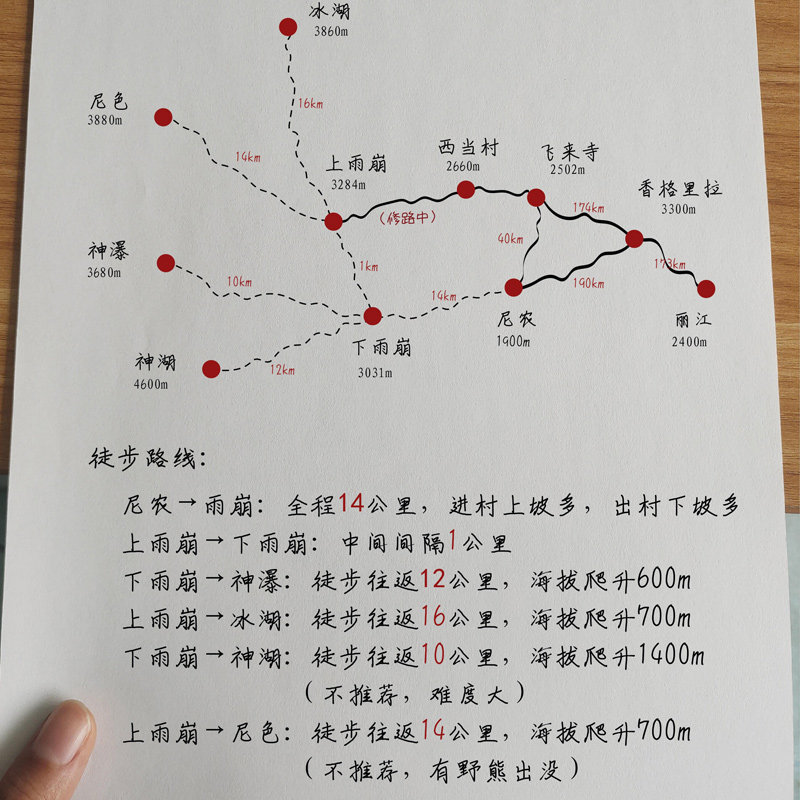 冰湖
3860m
16km
尼色
3880m
14km
上雨崩
3284m
西当村
2660m
飞来寺
2502m
香格里拉
3300m
(修路中)
174km
40km
173km
190km
神瀑
3680m
10km
1km
14km
尼农
1900m
丽江
2400m
下雨崩
3031m
神湖
4600m
12km
徒步路线：
尼农→雨崩：全程14公里，进村上坡多，出村下坡多
上雨崩→下雨崩：中间间隔1公里
下雨崩→神瀑：徒步往返12公里，海拔爬升600m
上雨崩→冰湖：徒步往返16公里，海拔爬升700m
下雨崩→神湖：徒步往返10公里，海拔爬升1400m
（不推荐，难度大）
上雨崩→尼色：徒步往返14公里，海拔爬升700m
（不推荐，有野熊出没）